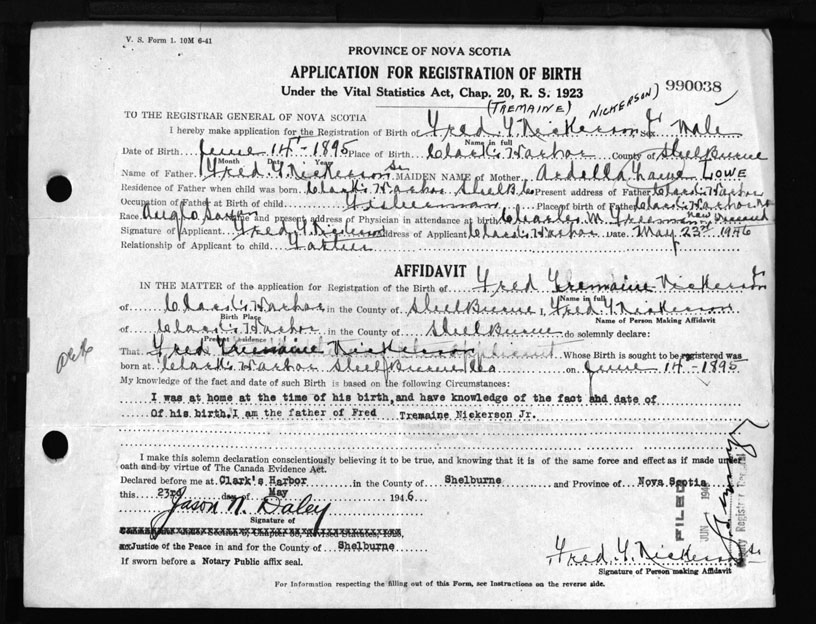 V. S. Form 1. 10M 6-41
PROVINCE OF NOVA SCOTIA
APPLICATION FOR REGISTRATION OF BIRTH
Under the Vital Statistics Act, Chap. 20, R. S. 1923
990038
(TREMAINE) NICKERSON)
TO THE REGISTRAR GENERAL OF NOVA SCOTIA
I hereby make application for the Registration of Birth of Fred T. Nickerson Jr Sex Male
Name in full
Date of Birth June 14th - 1895 Place of Birth Clark's Harbor County of Shelburne
Month Date Year
Name of Father Fred. T. Nickerson Sr MAIDEN NAME of Mother Ardella Lowe LOWE
Residence of Father when child was born Clark's Harbor Shelb Co Present address of Father Clark's Harbor
Occupation of Father at Birth of child Fisherman Place of birth of Father Clark's Harbor
Race Anglo Saxon Name and present address of Physician in attendance at birth Charles M. Freeman now Deceased
Signature of Applicant Fred T. Nickerson Address of Applicant Clark's Harbor Date May 23rd 1946
Relationship of Applicant to child Father
AFFIDAVIT
IN THE MATTER of the application for Registration of the Birth of Fred Tremaine Nickerson Jr
Name in full
of Clark's Harbor in the County of Shelburne I, Fred T. Nickerson
Birth Place Name of Person Making Affidavit
of Clark's Harbor in the County of Shelburne do solemnly declare:
Present Residence
That Fred Tremaine Nickerson Whose Birth is sought to be registered was
born at Clark's Harbor Shelburne Co on June 14 - 1895
My knowledge of the fact and date of such Birth is based on the following Circumstances:
I was at home at the time of his birth, and have knowledge of the fact and date of
Of his birth. I am the father of Fred Tremaine Nickerson Jr.
I make this solemn declaration conscientiously believing it to be true, and knowing that it is of the same force and effect as if made under
oath and by virtue of The Canada Evidence Act.
Declared before me at Clark's Harbor in the County of Shelburne and Province of Nova Scotia
this 23rd day of May 1946
Jason N. Daley
Signature of
Justice of the Peace in and for the County of Shelburne
If sworn before a Notary Public affix seal.
FILED
JUN 194
Deputy Registrar General
Fred. T. Nickerson Sr.
Signature of Person making Affidavit
For Information respecting the filling out of this Form, see Instructions on the reverse side.